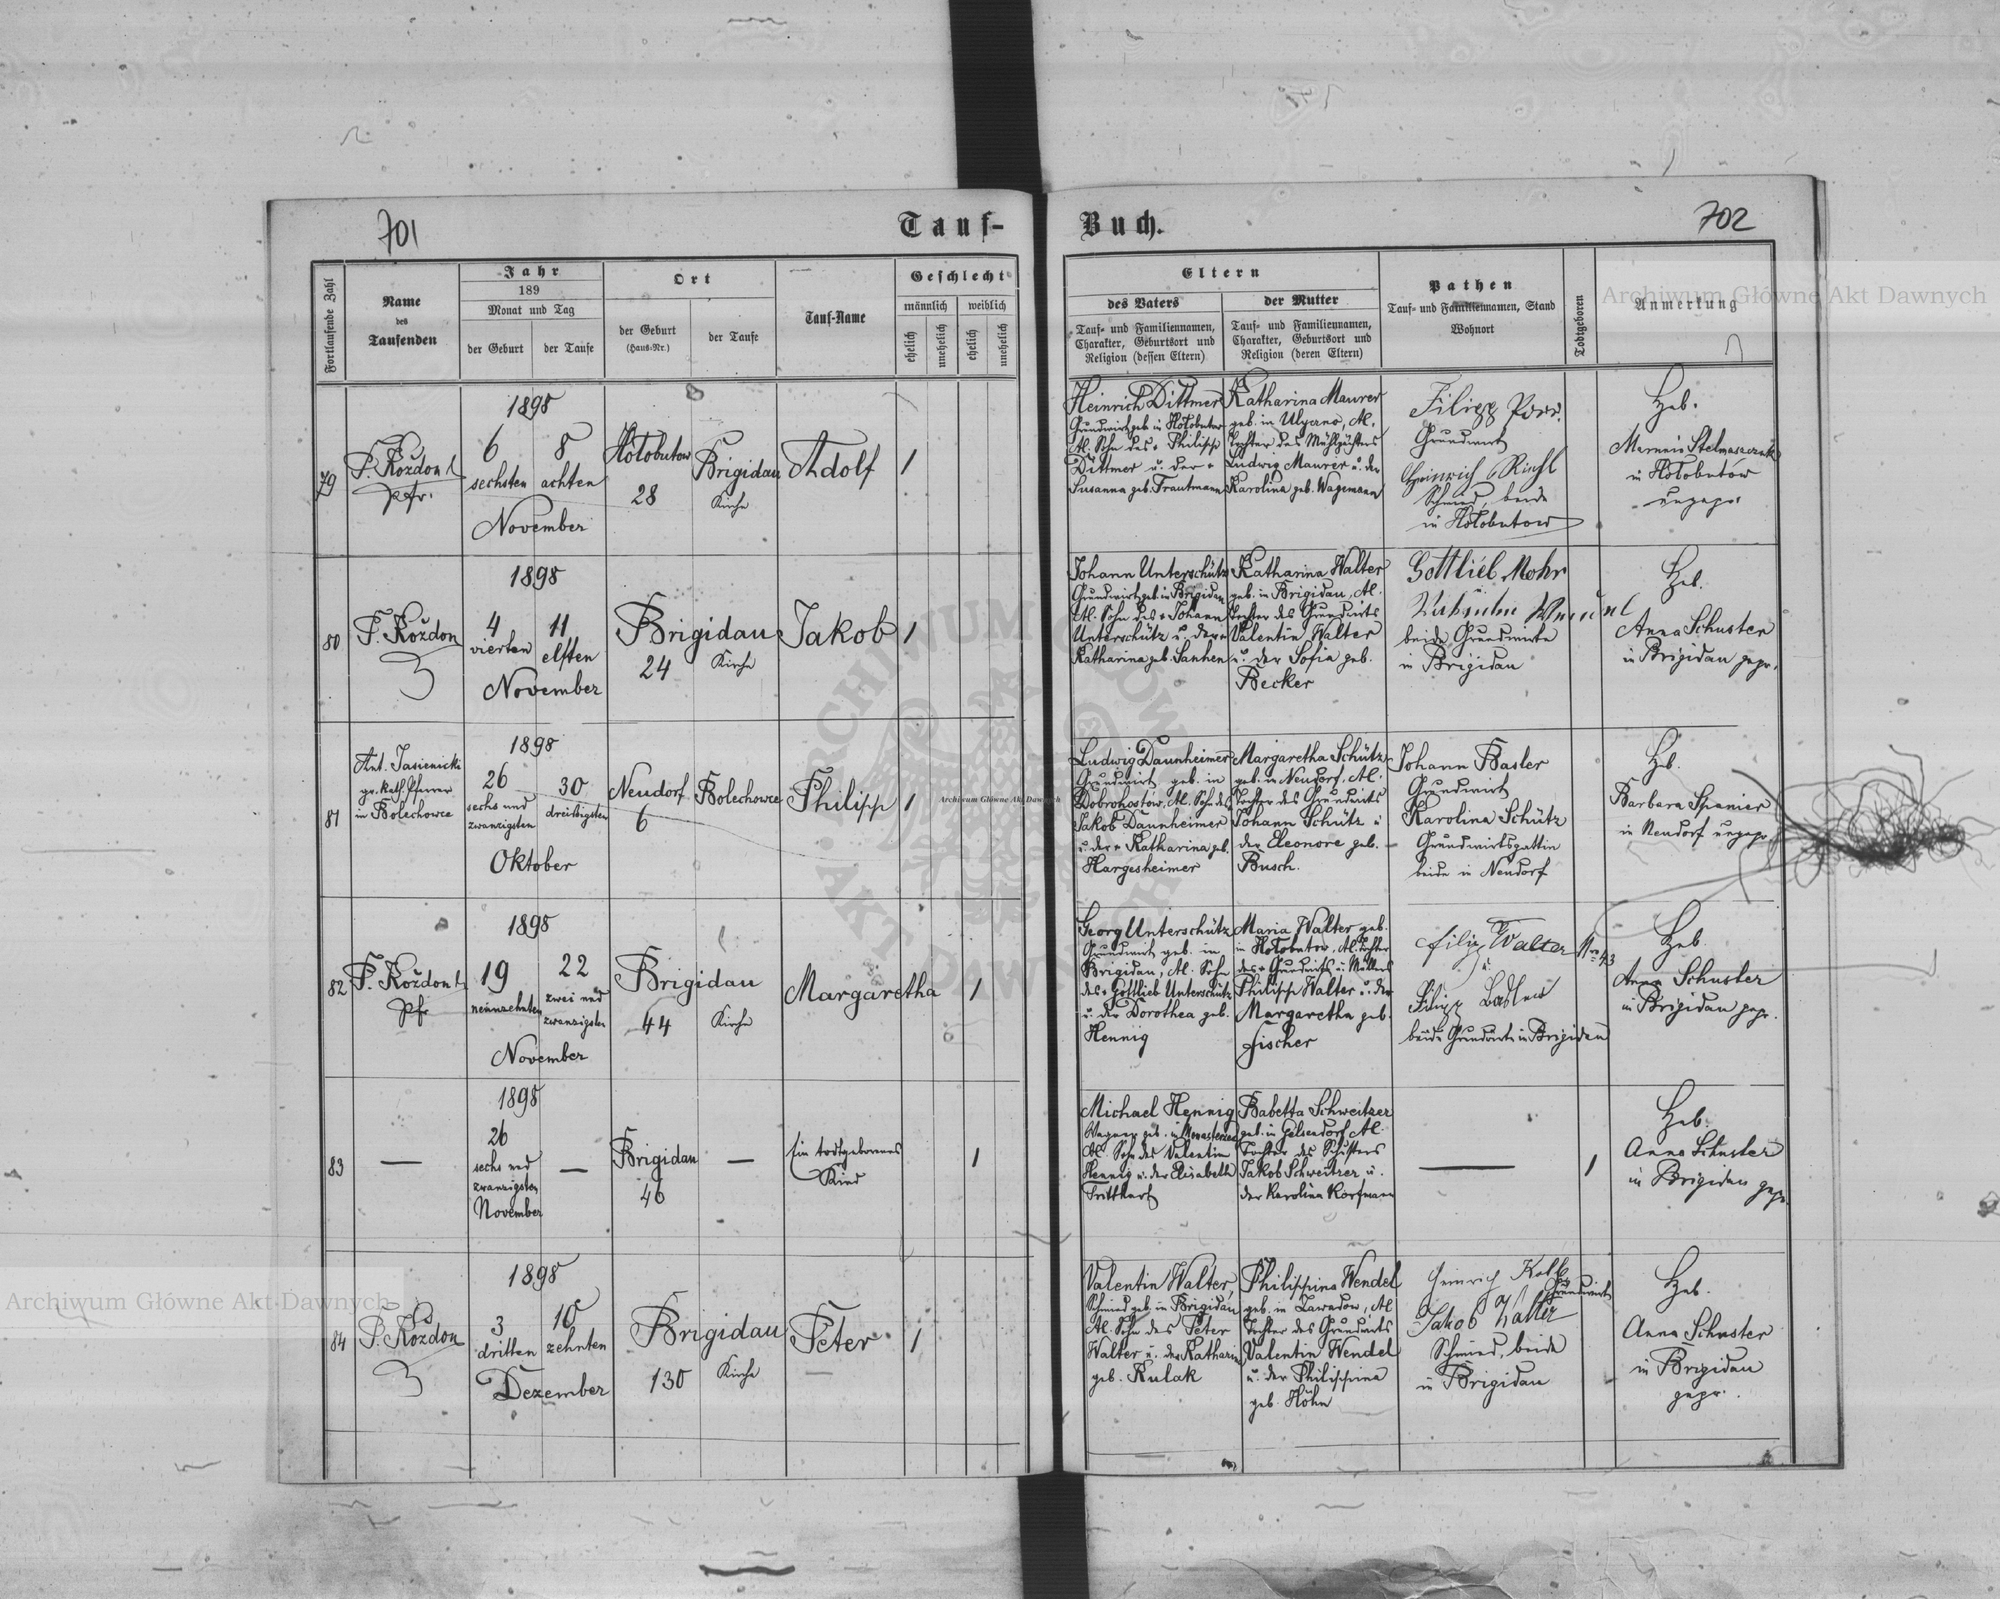 701
Tauf-
Buch.
702
Fortlaufende Zahl
Name
des
Taufenden
Jahr
189
Monat und Tag
der Geburt
der Taufe
Ort
der Geburt
(Haus-Nr.)
der Taufe
Tauf-Name
Geschlecht
männlich
weiblich
ehelich
unehelich
ehelich
unehelich
Eltern
des Vaters
Tauf- und Familiennamen,
Charakter, Geburtsort und
Religion (dessen Eltern)
der Mutter
Tauf- und Familiennamen,
Charakter, Geburtsort und
Religion (deren Eltern)
Pathen
Tauf- und Familiennamen, Stand
Wohnort
Todtgeboren
Anmerkung
79
F. Koždon
Pfr.
1898
6
sechsten
8
achten
November
Hołobutow
28
Brigidau
Kirche
Adolf
1
Heinrich Dittmer
Grundwirt geb. in Hołobutow
Al. Sohn des + Philipp
Dittmer u. der +
Susanna geb. Trautmann
Katharina Maurer
geb. in Ulyczno, Al.
Tochter des
Ludwig Maurer u. der
Karolina geb. Wagemann
Filipp
Grundwirt
Heinrich
Schmied, beide
in Hołobutow
Heb.
in Hołobutow
ungepr.
80
F. Koždon
1898
4
vierten
11
elften
November
Brigidau
24
Kirche
Jakob
1
Johann Unterschütz
Grundwirt geb. in Brigidau
Al. Sohn des + Johann
Unterschütz u. der +
Katharina geb.
Katharina Walter
geb. in Brigidau, Al.
Tochter des Grundwirts
Valentin Walter
u. der Sofia geb.
Becker
Gottlieb Mohr
beide Grundwirte
in Brigidau
Heb.
Anna Schuster
in Brigidau gepr.
81
Ant. Jasienicki
gr. kath. Pfarrer
in Bolechowce
1898
26
sechs und
zwanzigsten
30
dreißigsten
Oktober
Neudorf
6
Bolechowce
Philipp
1
Ludwig Daunheimer
Grundwirt geb. in
Dobrohostow, Al. Sohn des
Jakob Daunheimer
u. der + Katharina geb.
Hargesheimer
Margaretha Schütz
geb. in Neudorf, Al.
Tochter des Grundwirts
Johann Schütz u
der Eleonore geb.
Busch.
Johann Basler
Grundwirt
Karolina Schütz
Grundwirtsgattin
beide in Neudorf
Heb.
Barbara Spanier
in Neudorf ungepr.
82
F. Koždon
Pfr
1898
19
neunzehnten
22
zwei und
zwanzigsten
November
Brigidau
44
Kirche
Margaretha
1
Georg Unterschütz
Grundwirt geb. in
Brigidau, Al. Sohn
des + Gottlieb Unterschütz
u. der Dorothea geb.
Hennig
Maria Walter geb.
in Hołobutow, Al. Tochter
des + Grundwirts u. Müllers
Philipp Walter u. der
Margaretha geb.
Fischer
Filipp Walter
u.
Filipp
beide Grundwirte in Brigidau
Heb.
Anna Schuster
in Brigidau gepr.
83
—
1898
26
sechs und
zwanzigsten
November
—
Brigidau
46
—
Ein todtgeborenes
Kind
1
Michael Hennig
Wagner geb. in
Al. Sohn des Valentin
Hennig u. der Elisabeth
Babetta Schweitzer
geb. in Gelsendorf Al.
Tochter des Schusters
Jakob Schweitzer u.
der Karolina Korfmann
—
1
Heb.
Anna Schuster
in Brigidau gepr.
84
F. Koždon
1898
3
dritten
10
zehnten
Dezember
Brigidau
130
Kirche
Peter
1
Valentin Walter,
Schmied geb. in Brigidau
Al. Sohn des Peter
Walter u. der Katharina
geb. Kulak
Philippina Wendel
geb. in Zawadow, Al
Tochter des Grundwirts
Valentin Wendel
u. der Philippina
geb. Höhn
Heinrich Kolb
Grundwirt
Jakob Walter
Schmied, beide
in Brigidau
Heb.
Anna Schuster
in Brigidau
gepr.
Archiwum Główne Akt Dawnych
Archiwum Główne Akt Dawnych
Archiwum Główne Akt Dawnych
ARCHIWUM GŁÓWNE AKT DAWNYCH